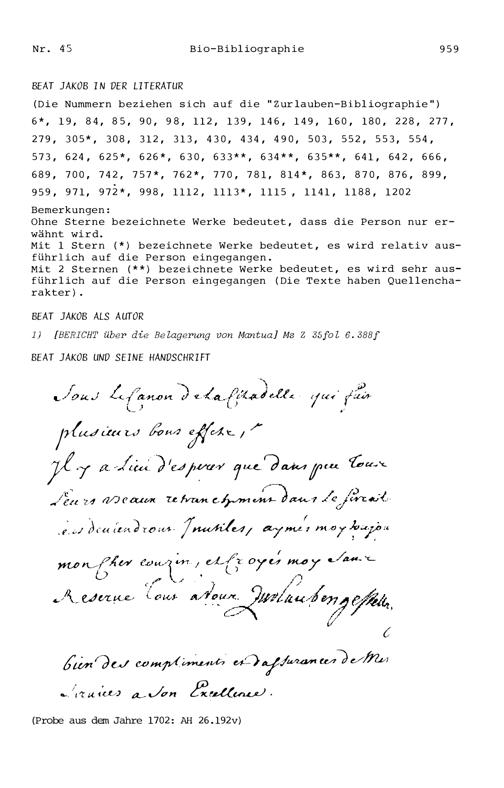 Nr. 45 Bio-Bibliographie 959
BEAT JAKOB IN DER LITERATUR
(Die Nummern beziehen sich auf die "Zurlauben-Bibliographie")
6*, 19, 84, 85, 90, 98, 112, 139, 146, 149, 160, 180, 228, 277,
279, 305*, 308, 312, 313, 430, 434, 490, 503, 552, 553, 554,
573, 624, 625*, 626*, 630, 633**, 634**, 635**, 641, 642, 666,
689, 700, 742, 757*, 762*, 770, 781, 814*, 863, 870, 876, 899,
959, 971, 972*, 998, 1112, 1113*, 1115, 1141, 1188, 1202
Bemerkungen:
Ohne Sterne bezeichnete Werke bedeutet, dass die Person nur er-
wähnt wird.
Mit 1 Stern (*) bezeichnete Werke bedeutet, es wird relativ aus-
führlich auf die Person eingegangen.
Mit 2 Sternen (**) bezeichnete Werke bedeutet, es wird sehr aus-
führlich auf die Person eingegangen (Die Texte haben Quellencha-
rakter).
BEAT JAKOB ALS AUTOR
1) [BERICHT über die Belagerung von Mantua] Ms Z 35fol 6.388f
BEAT JAKOB UND SEINE HANDSCHRIFT
Sous le Canon de la Citadelle qui fait
plusieurs bons effets,
Il y a Lieu d'esperer que dans peu tous
Leurs veaux retranchement dans Le
deviendront Inutiles, aymés moy toujou
mon Cher couzin, et Croyés moy sans
Reserve tous a vous Zurlauben gestelln.
bien des compliments et d'assurances de Mes
Services a son Excellence.
(Probe aus dem Jahre 1702: AH 26.192v)